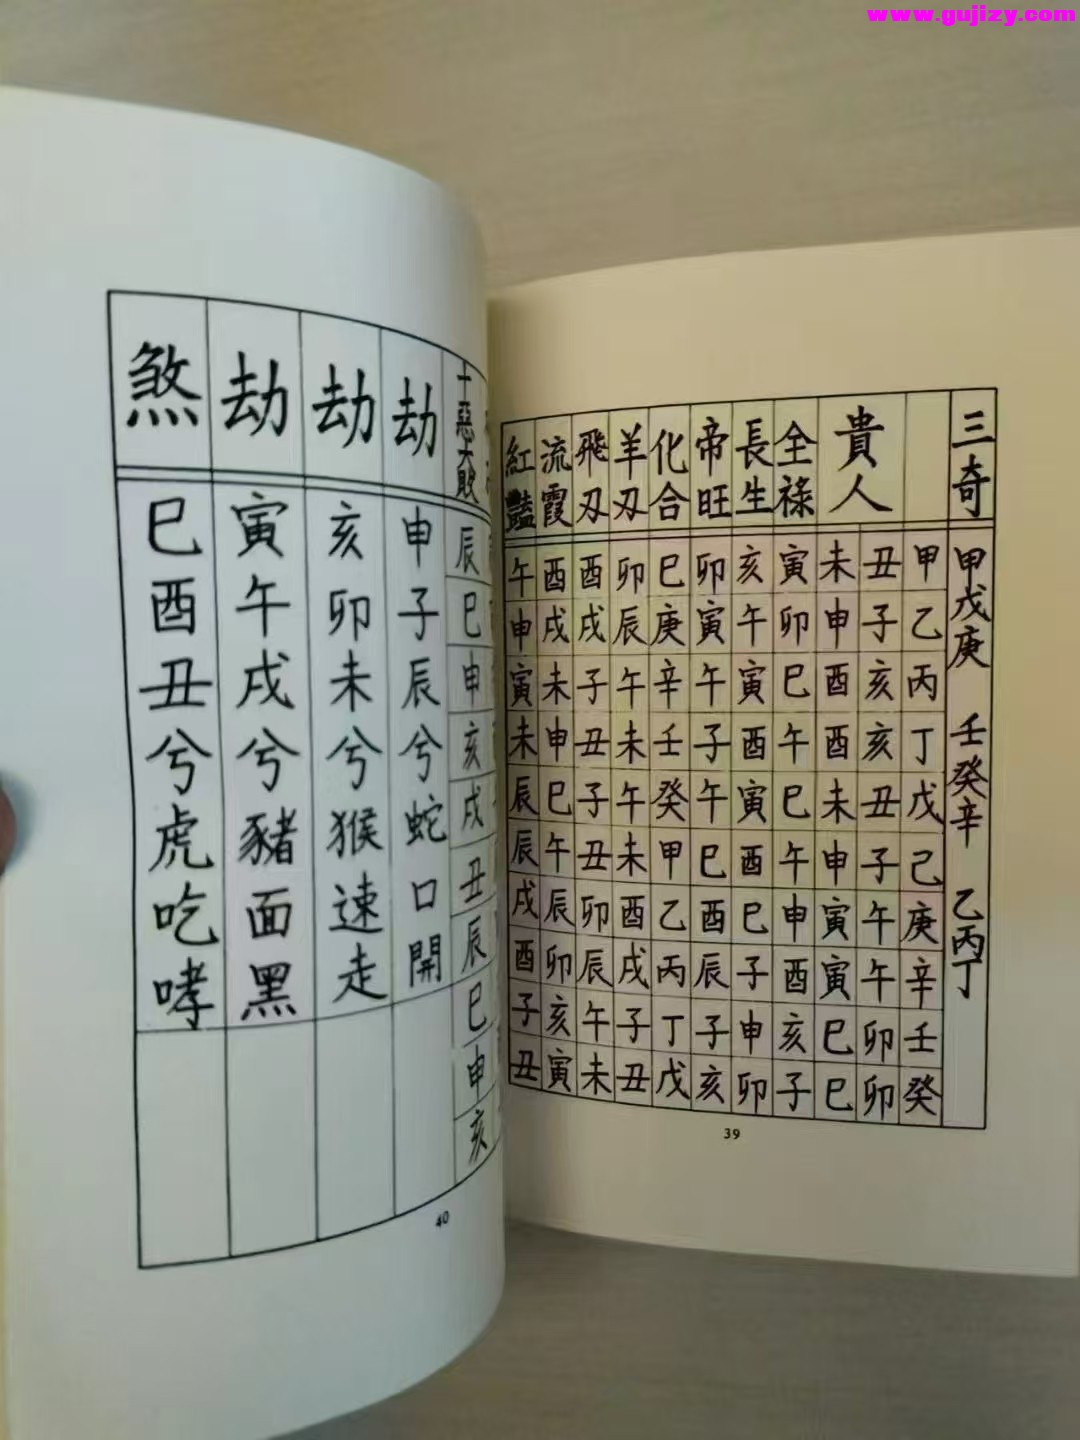 www.gujizy.com
三奇 甲戊庚 壬癸辛 乙丙丁
甲乙丙丁戊己庚辛壬癸
貴人
丑子亥亥丑子午午卯卯
未申酉酉未申寅寅巳巳
全祿 寅卯巳午巳午申酉亥子
長生 亥午寅酉寅酉巳子申卯
帝旺 卯寅午子午巳酉辰子亥
化合 巳庚辛壬癸甲乙丙丁戊
羊刃 卯辰午未午未酉戌子丑
飛刃 酉戌子丑子丑卯辰午未
流霞 酉戌未申巳午辰卯亥寅
紅豔 午申寅未辰辰戌酉子丑
39
十惡大敗 辰巳申亥戌丑辰巳申亥
劫 申子辰兮蛇口開
劫 亥卯未兮猴速走
劫 寅午戌兮豬面黑
煞 巳酉丑兮虎吃哮
40